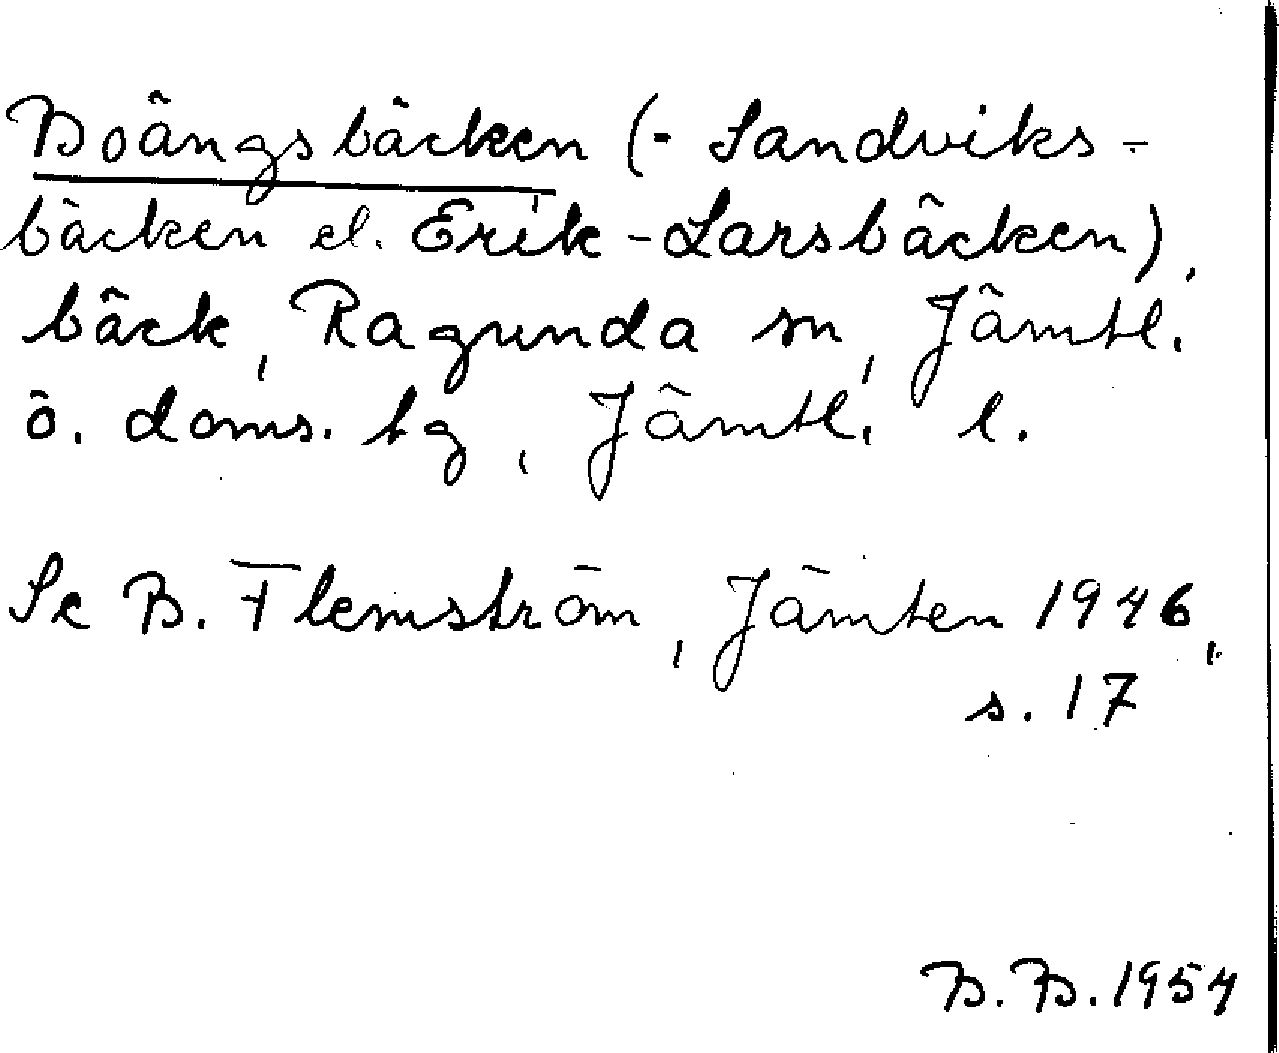 Boängsbäcken (= Sandviks-
bäcken el. Erik-Larsbäcken),
bäck, Ragunda sn, Jämtl.
ö. doms. hg, Jämtl. l.
Se B. Flemström, Jämten 1946,
s. 17
B. B. 1954